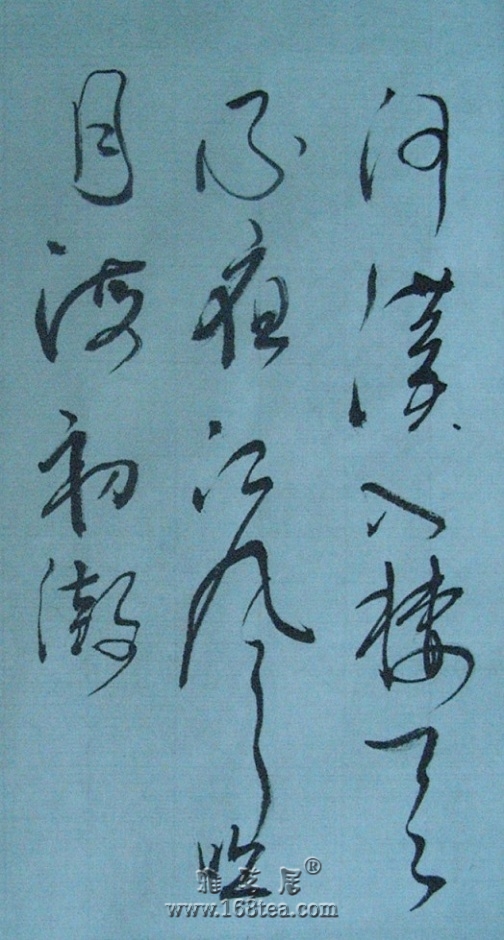 河漢入樓天
不夜江風吹
月海初潮
雅茗居®
www.168tea.com